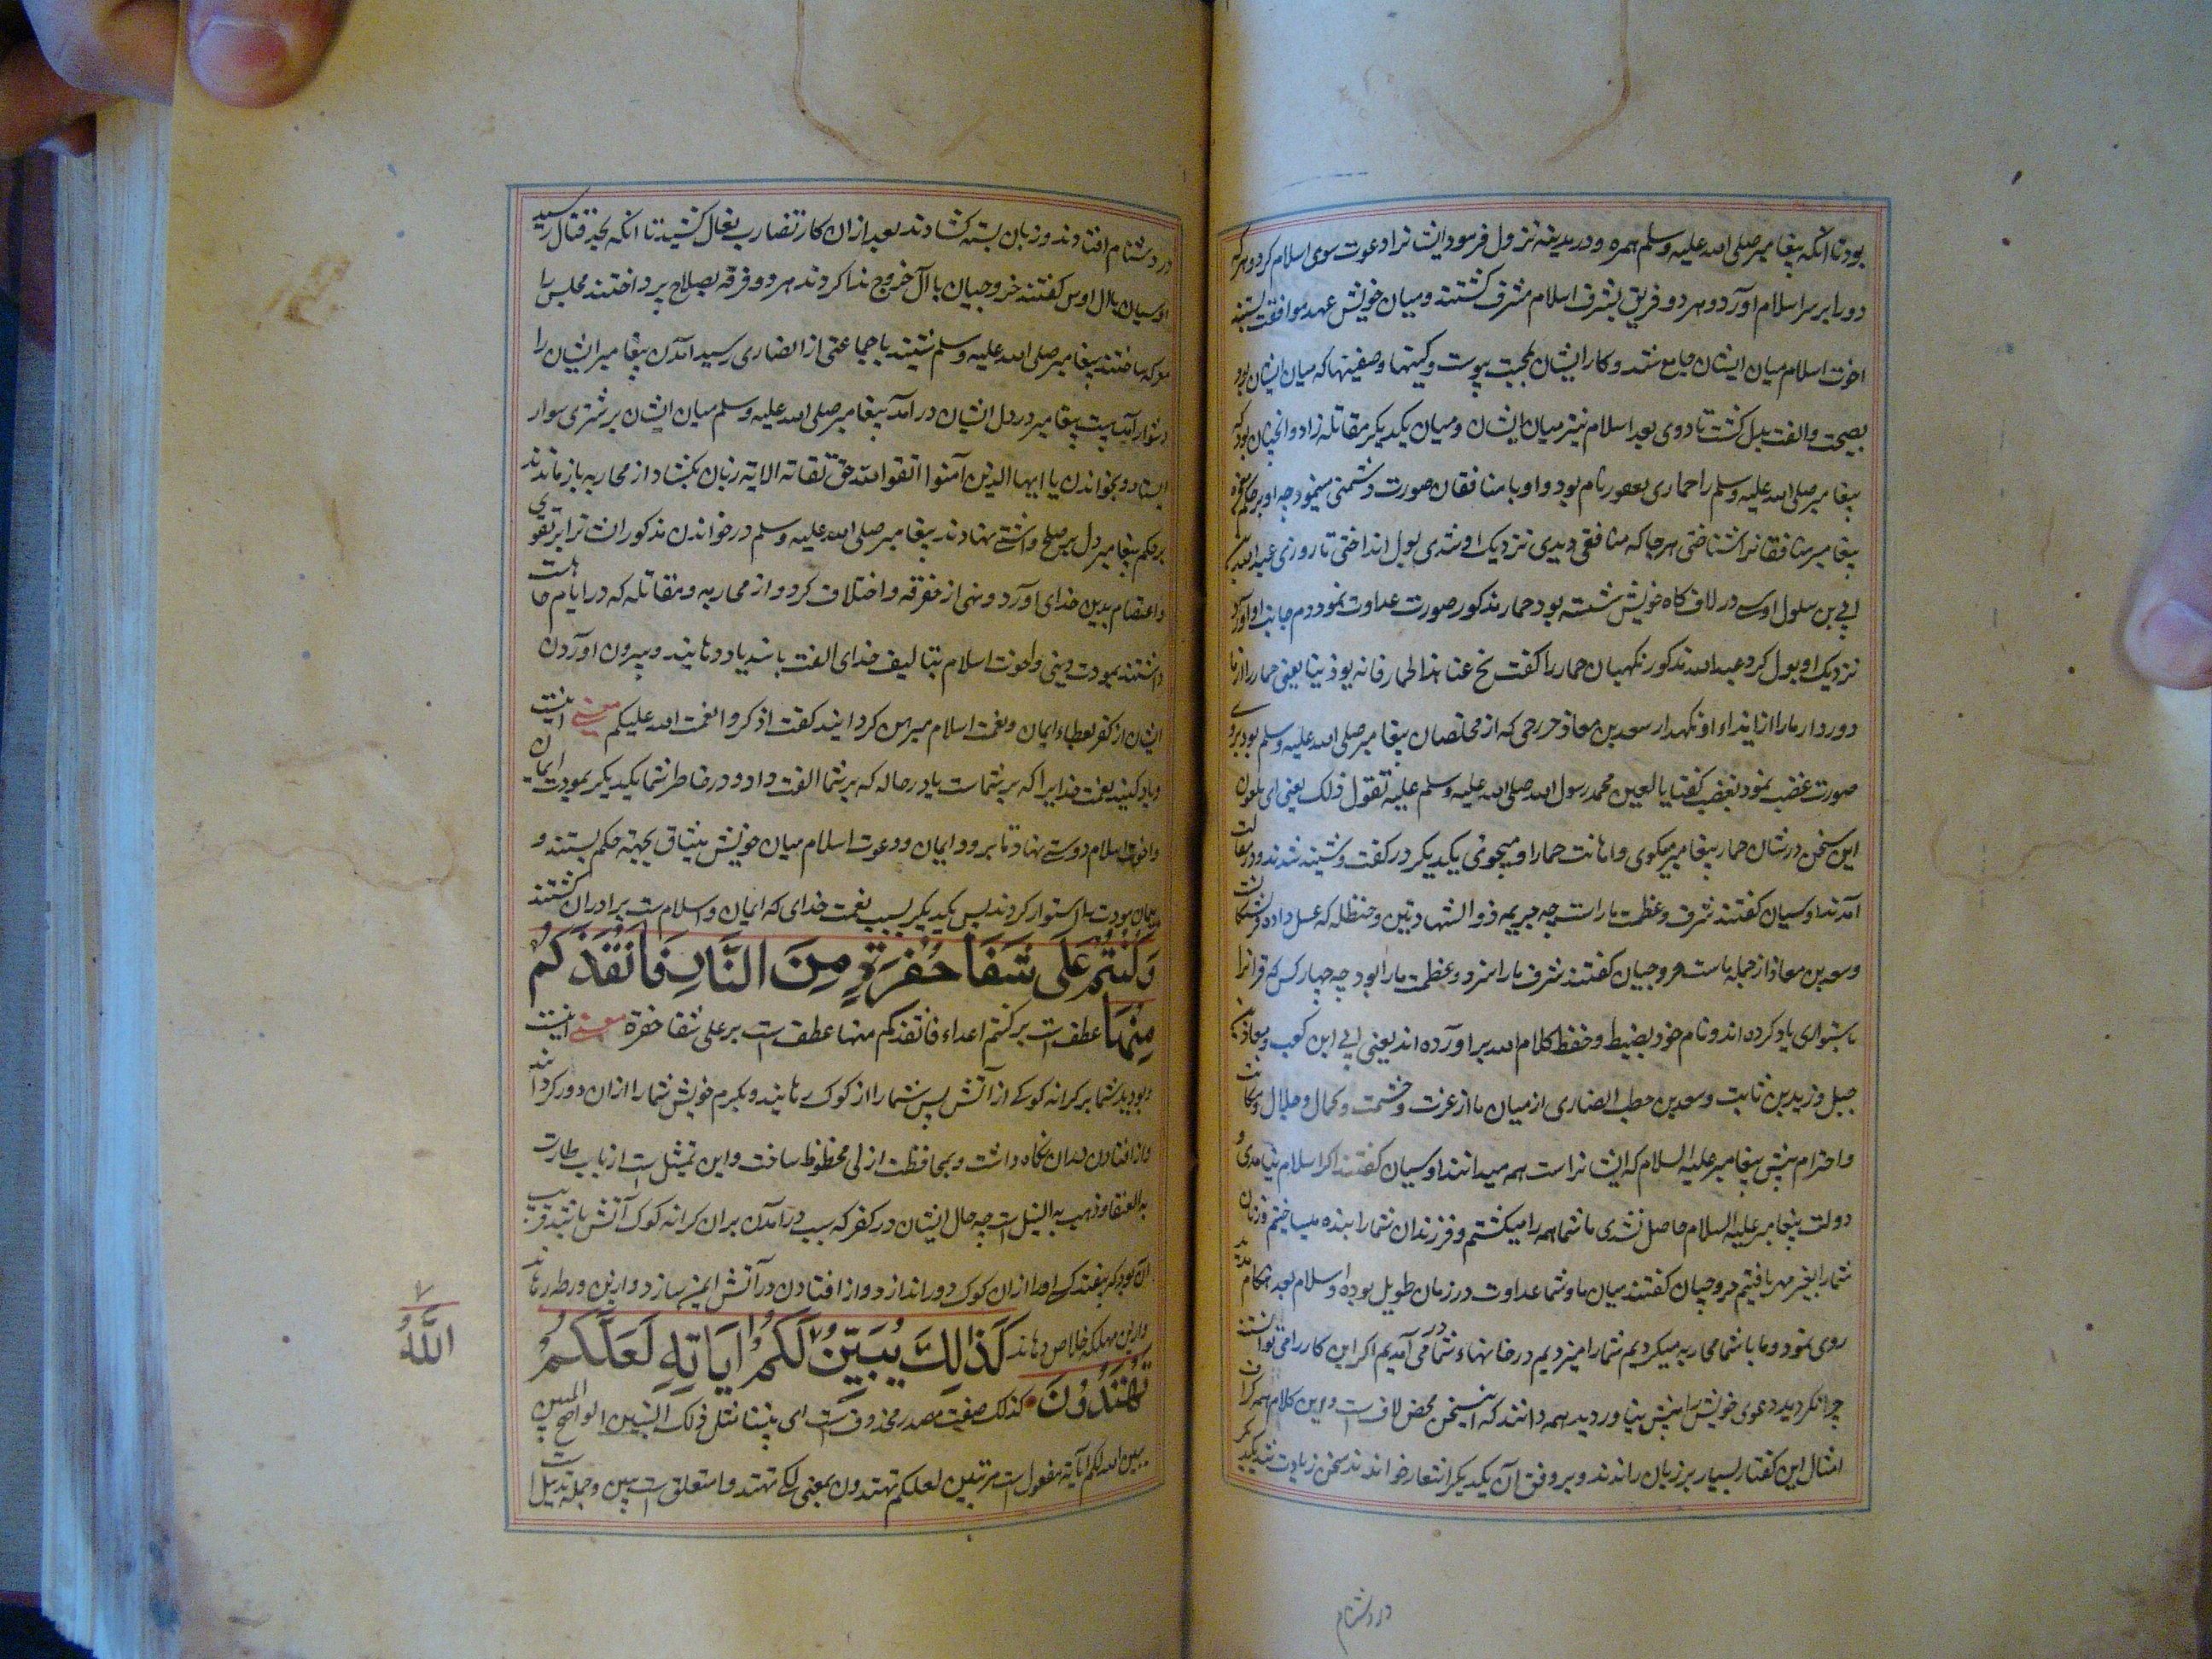 بود تا آنکه پیغامبر صلی الله علیه وسلم همره و در مدینه نزول فرمود ایشانرا دعوت سوی اسلام کرد و هرکه
دور ابر سر اسلام آورد و هر دو فریق بشرف اسلام مشرف کشتند و میان خویش عهد موافقت بستند
اخوت اسلام میان ایشان جامع شد و کار ایشان بمحبت پیوست و کینها و ضغینها که میان ایشان بود
بصحبت و الفت بدل کشت تا دوی بعد اسلام نیز میان ایشان و میان یکدیکر مقاتله زاد و انچنان بود که
پیغامبر صلی الله علیه وسلم را حماری یعفور نام بود و او با منافقان صورت دشمنی مینمود چه او بر حکم
پیغامبر منافقانرا شناختی هر جا که منافقی دیدی نزدیک او شدی بول انداختی تا روزی عبد الله
ابی بن سلول اوسی در لاف کاه خویش نشسته بود حمار مذکور صورت عداوت نمود دم جانب او آورد
نزدیک او بول کرد عبد الله مذکور نکهبان حمار را کفت نح عنا هذا الحمار فانه یوذینا یعنی حمار را از ما
دور دار ما را از ایذاء او نکهدار سعد بن معاذ خزرجی که از مخلصان پیغامبر صلی الله علیه وسلم بود بروی
صورت غضب نمود بغضب کفت یا لعین محمد رسول الله صلی الله علیه وسلم علیه تقول ذلک یعنی ای ملعون
این سخن در شان حمار پیغامبر میکوی و اهانت حمار او میجوئی یکدیکر در کفت و شنید شدند و در مقالت
آمدند اوسیان کفتند شرف و عظمت ماراست چه خزیمه ذو الشهادتین و حنظله که غسل داده فرشتکانست
و سعد بن معاذ از جمله ماست خزوجیان کفتند شرف ما را سزد و عظمت ما را بود چه چهار کس که قرانرا
باستواری یاد کرده اند و نام خود بضبط و حفظ کلام الله بر آورده اند یعنی ابی ابن کعب و معاذ بن
جبل و زید بن ثابت و سعد بن حطب انصاری از میان ما از عزت و حشمت و کمال و جلال و مکانت
و احترام پیش پیغامبر علیه السلام که ایشانراست همه میدانند اوسیان کفتند اکر اسلام نیامدی و
دولت پیغامبر علیه السلام حاصل نشدی ما شما همه را میکشتیم و فرزندان شما را بنده میساختیم و زنان
شما را بغیر مهر یافتیم خروجیان کفتند میان ما و شما عداوت در زمان طویل بوده و اسلام بعد هنکام مدید
روی نمود و ما با شما محاربه میکردیم شما را میزدیم در خانهاء شما در می آمدیم اکر این کار را می توانستند
چرا نکردید دعوی خویش را پیش نیاوردید همه دانند که این سخن محض لاف است و این کلام همه کزاف
امثال این کفتار بسیار بر زبان راندند و بر وفق آن یکدیکر اشعار خواندند سخن زیادت شد یکدیکر
در دشنام
در دشنام افتادند و زبان بسته کشادند بعد از ان کار تضارب بنعال کشید تا انکه بحد قتال رسید
اوسیان یا آل اوس کفتند خروجیان یا آل خروج ندا کردند هر دو فرقه بصلاح پرداختند مجلس را
معرکه ساختند پیغامبر صلی الله علیه وسلم شنید با جماعتی از انصاری رسید آمدن پیغامبر ایشان را
دشوار آمد هیبت پیغامبر در دل ایشان در آمد پیغامبر صلی الله علیه وسلم میان ایشان بر شتری سوار
ایستاد و بخواندن یا ایها الذین آمنوا اتقوا الله حق تقاته الایه زبان بکشاد از محاربه باز ماندند
بر حکم پیغامبر دل بر صلح و آشتی نهادند پیغامبر صلی الله علیه وسلم در خواندن مذکور ایشانرا بر تقوی
و اعتصام بدین خدای آورد و نهی از تفرقه و اختلاف کرد و از محاربه و مقاتله که در ایام جاهلیت
داشتند بمودت دینی و اخوت اسلام بتالیف خدای الفت باشد یاد دهانید و بیرون آوردن
ایشان از کفر بعطاء ایمان و نعمت اسلام مبرهن کردانید کفت اذکروا نعمت الله علیکم معنی اینست
و یاد کنید نعمت خدایرا که بر شماست یا در حاله که بر شما الفت داد و در خاطر شما یکدیکر بمودت ایمان
و اخوت اسلام دوستی نهاد تا بر وو ایمان و دعوت اسلام میان خویش میثاق بجهته محکم بستند و
پیمان مودت را استوار کردند پس یکدیکر بسبب نعمت خدای که ایمان و اسلام است برادران کشتند
وَکُنْتُمْ عَلَی شَفَا حُفْرَةٍ مِنَ النَّارِ فَاَنْقَذَکُمْ
مِنْهَا عطف است بر کنتم اعداء فانقذکم منها عطف است بر علی شفا حفرة معنی اینست
و بودید شما بر کرانه کوی از آتش پس شما را از کوک رهانید و بکرم خویش شما را از ان دور کردانید
و از افتادن در ان نکاه داشت و بمحافظت ازلی محظوظ ساخت و این تمثیل است از باب طارت
به العنقا و ذهب به السیل است چه حال ایشان در کفر که سبب در آمدن بران کرانه کوک آتش مانند قریب
آن بود که بیفتد کسی او را از ان کوک دور اندازد و از افتادن در آتش ایمن سازد و از این ورطه رهاند
و از این مهلکه خلاص دهاند کَذَالِكَ یُبَیِّنُ لَکُمْ ایَاتِهِ لَعَلَّکُمْ
تَهْتَدُونَ کذلک صفت مصدر محذوف است ای تبیینا مثل ذلک التبیین الواضح المبین
یبین الله لکم آیاته مفعول است مر تبیین لعلکم تهتدون بمعنی لکی تهتدوا متعلق است یبین و جمله تذییل
اللَّهُ